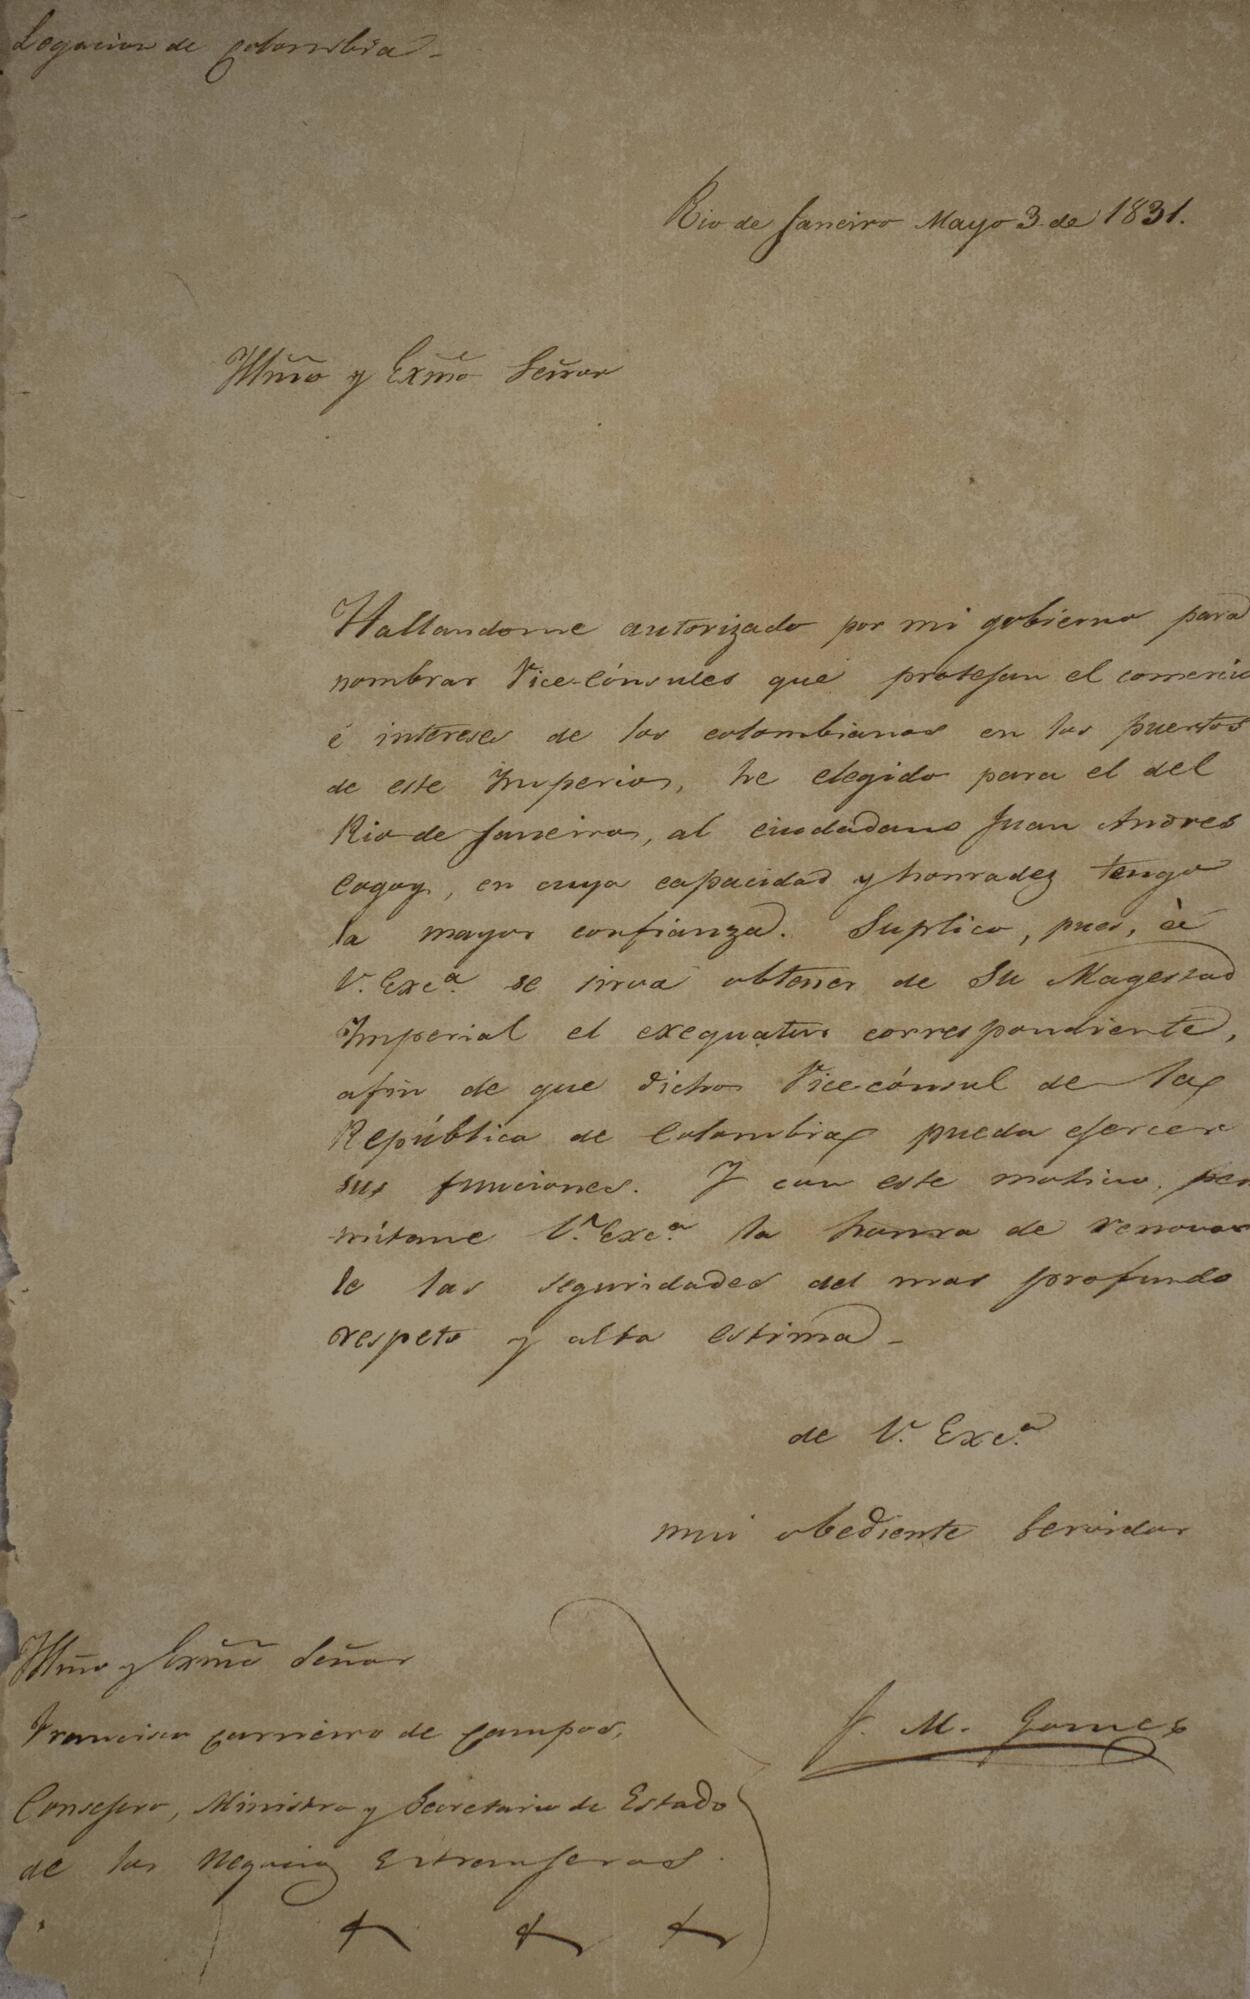 Legacion de Colombia_
Rio de Janeiro Mayo 3 de 1831.
Illm̃o y Exm̃o Señor
Hallandome autorizado por mi gobierno para
nombrar Vice-Cónsules que protejan el comercio
é intereses de los colombianos en los puertos
de este Imperio, he elegido para el del
Rio de Janeiro, al ciudadano Juan Andres
Cogoy, en cuya capacidad y honradez tengo
la mayor confianza. Suplico, pues, à
V. Exc.ª se sirva obtener de Su Magestad
Imperial el exequatur correspondiente,
afin de que dicho Vice-cónsul de la
República de Colombia pueda ejercer
sus funciones. Y con este motivo, per
mítame V. Exc.ª la honra de renovar
le las seguridades del mas profundo
respeto y alta estima_
de V. Exc.ª
mui obediente Servidor
Illm̃o y Exm̃o Señor
Francisco Carneiro de Campos,
J. M. Gomez
Consejero, Ministro y Secretario de Estado
de los Negocios Extranjeros.